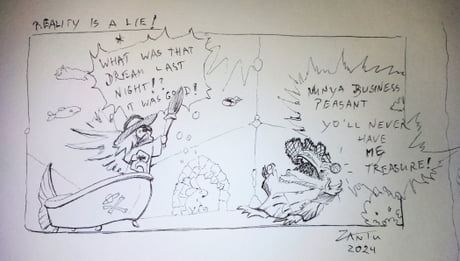 REALITY IS A LIE!
*
WHAT WAS THAT
DREAM LAST
NIGHT!?
IT WAS GOOD!
MINYA BUSINESS
PEASANT
YOU'LL NEVER
HAVE
ME
TREASURE!
ZANTU
2024